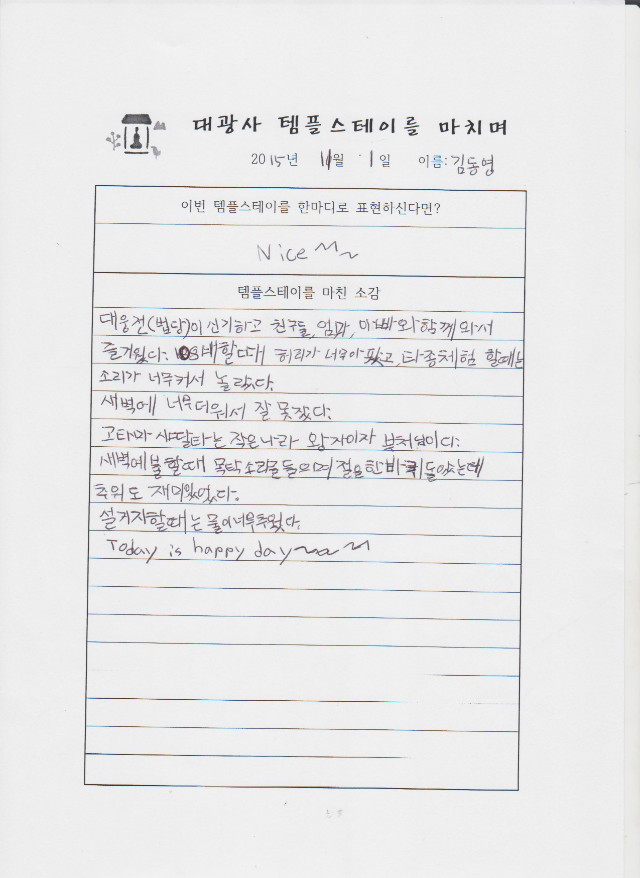 대광사 템플스테이를 마치며
2015년 11월 1일 이름: 김동영
이번 템플스테이를 한마디로 표현하신다면?
Nice~~
템플스테이를 마친 소감
대웅전(법당)이 신기하고 친구들, 엄마, 아빠와 함께와서
즐거웠다. 108배할때 허리가 너무아팠고, 타종체험 할때는
소리가 너무커서 놀랐다.
새벽에 너무더워서 잘 못잤다.
고타마 싯달타는 작은나라 왕자이자 부처님이다.
새벽에불할때 목탁소리를들으며 절을한바퀴돌았는데
추워도 재미있었다.
설거지할때는 물이너무추웠다.
Today is happy day~~~